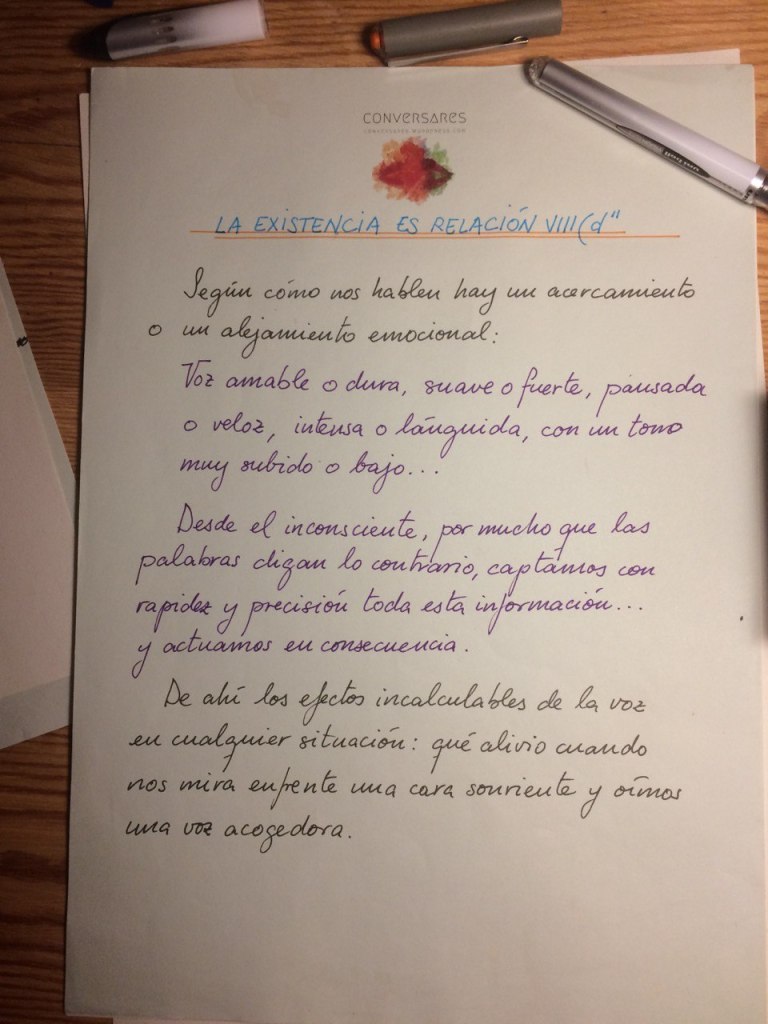 CONVERSARES
conversares.wordpress.com
LA EXISTENCIA ES RELACIÓN VIII(d"
Según cómo nos hablen hay un acercamiento
o un alejamiento emocional:
Voz amable o dura, suave o fuerte, pausada
o veloz, intensa o lánguida, con un tono
muy subido o bajo...
Desde el inconsciente, por mucho que las
palabras digan lo contrario, captamos con
rapidez y precisión toda esta información...
y actuamos en consecuencia.
De ahí los efectos incalculables de la voz
en cualquier situación: qué alivio cuando
nos mira enfrente una cara sonriente y oímos
una voz acogedora.